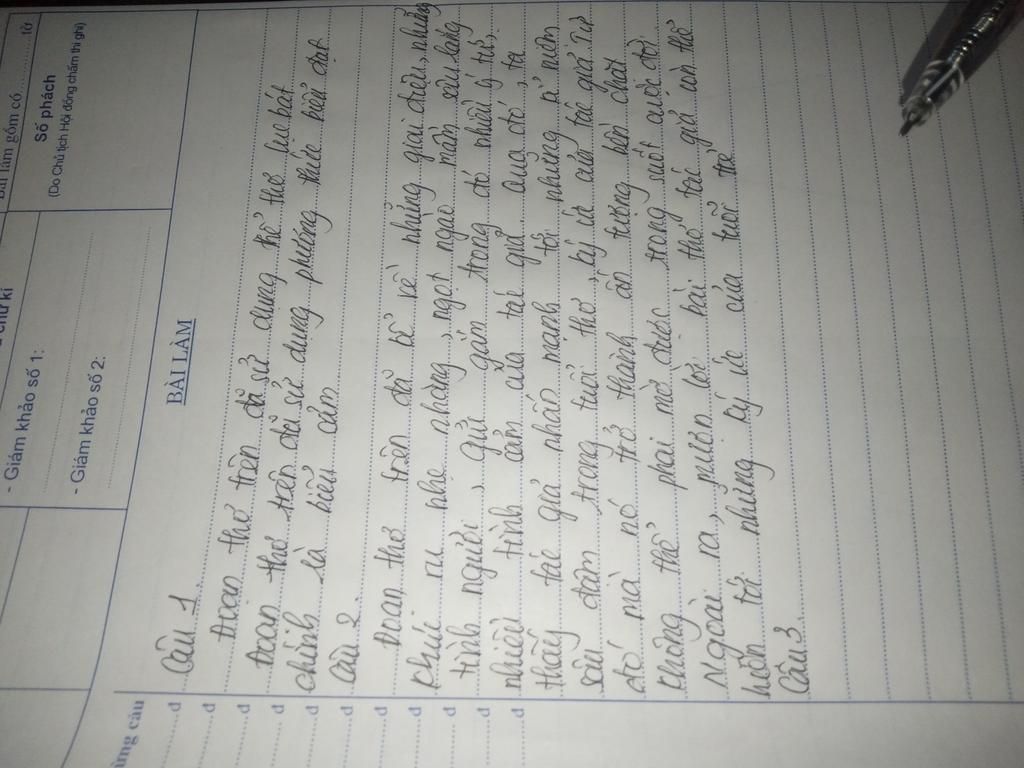 Bài làm gồm có......... tờ
Chữ kí
- Giám khảo số 1:
- Giám khảo số 2:
Số phách
(Do Chủ tịch Hội đồng chấm thi ghi)
ừng câu
BÀI LÀM
.......đ
.......đ
.......đ
.......đ
.......đ
.......đ
.......đ
.......đ
.......đ
.......đ
.......đ
Câu 1
Đoạn thơ trên đã sử dụng thể thơ lục bát
Đoạn thơ trên đã sử dụng phương thức biểu đạt
chính là biểu cảm
Câu 2
Đoạn thơ trên đã kể về những giai điệu, những
khúc ru nhẹ nhàng, ngọt ngào mằn sâu lắng
tình người, gửi gắm trong đó nhiều ý tứ,
nhiều tình cảm của tác giả. Qua đó, ta
thấy tác giả nhấn mạnh tới những kỉ niệm
sâu đậm trong tuổi thơ, ký ức của tác giả. Từ
đó mà nó trở thành ấn tượng hồn chất
không thể phai mờ được trong suốt cuộc đời
Ngoài ra, mượn lời bài thơ tác giả còn thể
hiện tả những ký ức của tuổi thơ
Câu 3